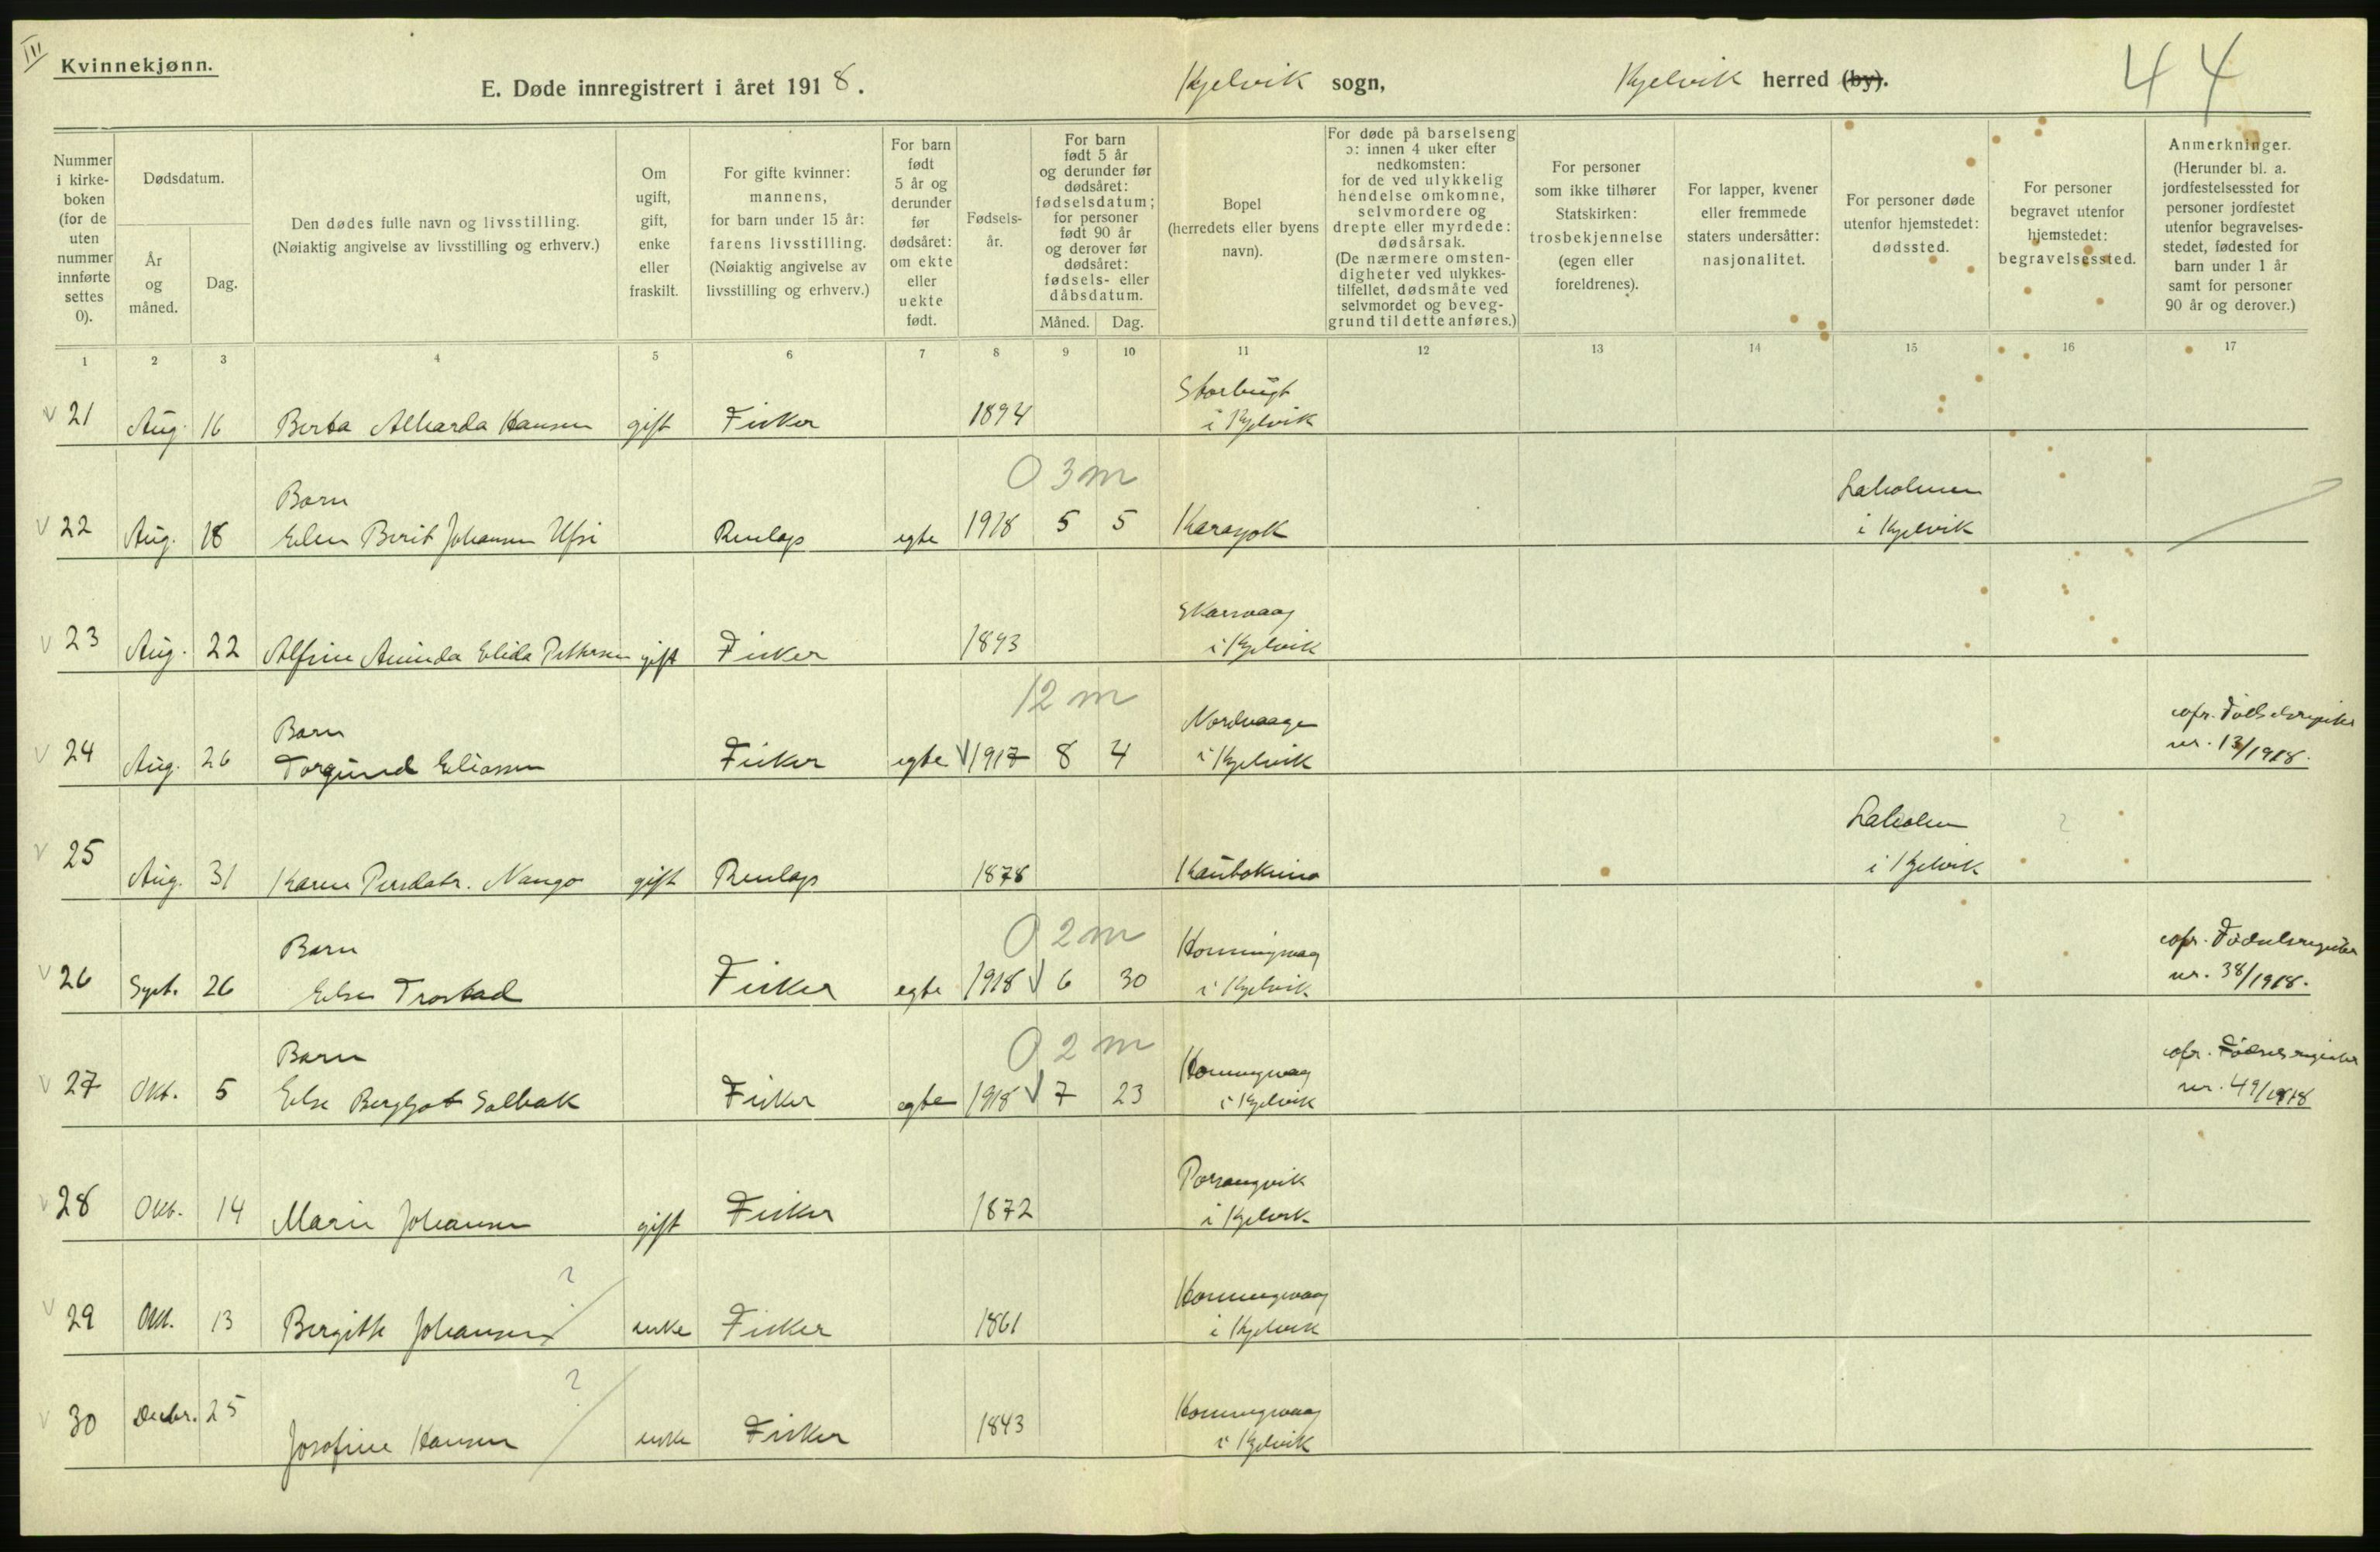 III
Kvinnekjønn.
E. Døde innregistrert i året 1918. Kjelvik sogn, Kjelvik herred (by). 44
Nummer i kirkeboken (for de uten nummer innførte settes 0).
Dødsdatum.
År og måned.
Dag.
Den dødes fulle navn og livsstilling.
(Nøiaktig angivelse av livsstilling og erhverv.)
Om ugift, gift, enke eller fraskilt.
For gifte kvinner: mannens, for barn under 15 år: farens livsstilling.
(Nøiaktig angivelse av livsstilling og erhverv.)
For barn født 5 år og derunder før dødsåret: om ekte eller uekte født.
Fødselsår.
For barn født 5 år og derunder før dødsåret: fødselsdatum; for personer født 90 år og derover før dødsåret: fødsels- eller dåbsdatum.
Måned.
Dag.
Bopel
(herredets eller byens navn).
For døde på barselseng ɔ: innen 4 uker efter nedkomsten: for de ved ulykkelig hendelse omkomne, selvmordere og drepte eller myrdede: dødsårsak.
(De nærmere omstendigheter ved ulykkestilfellet, dødsmåte ved selvmordet og beveggrund til dette anføres.)
For personer som ikke tilhører Statskirken: trosbekjennelse (egen eller foreldrenes).
For lapper, kvener eller fremmede staters undersåtter: nasjonalitet.
For personer døde utenfor hjemstedet: dødssted.
For personer begravet utenfor hjemstedet: begravelsessted.
Anmerkninger.
(Herunder bl. a. jordfestelsessted for personer jordfestet utenfor begravelsesstedet, fødested for barn under 1 år samt for personer 90 år og derover.)
1 2 3 4 5 6 7 8 9 10 11 12 13 14 15 16 17
Storbugt
21 Aug. 16 Berta Alharda Hansen gift Fisker 1894 i Kjelvik
0 3 m
Barn
22 Aug. 18 Elen Berit Johansen Utsi Renlap egte 1918 5 5 Karasjok
i Kjelvik
Skarsvaag
23 Aug. 22 Alfine Aminda Elida Pettersen gift Fisker 1893 i Kjelvik
12 m
Barn Nordvaagen cfr. Fødselsregister
24 Aug. 26 Torgund Eliassen Fisker egte 1917 8 4 i Kjelvik nr. 13/1918.
25 Aug. 31 Karen Persdatr. Nango gift Renlap 1878 Kautokeino i Kjelvik ?
0 2 m
Barn Honningvaag cfr. Fødselsregister
26 Sept. 26 Else Trostad Fisker egte 1918 6 30 i Kjelvik nr. 38/1918.
0 2 m
Barn Honningvaag cfr. Fødselsregister
27 Okt. 5 Else Bergljot Solbak Fisker egte 1918 7 23 i Kjelvik nr. 49/1918
Porsangvik
28 Okt. 14 Marie Johansen gift Fisker 1872 i Kjelvik
? Honningvaag
29 Okt. 13 Bergitte Johansen enke Fisker 1861 i Kjelvik
? Honningvaag
30 Decbr. 25 Josefine Hansen enke Fisker 1843 i Kjelvik